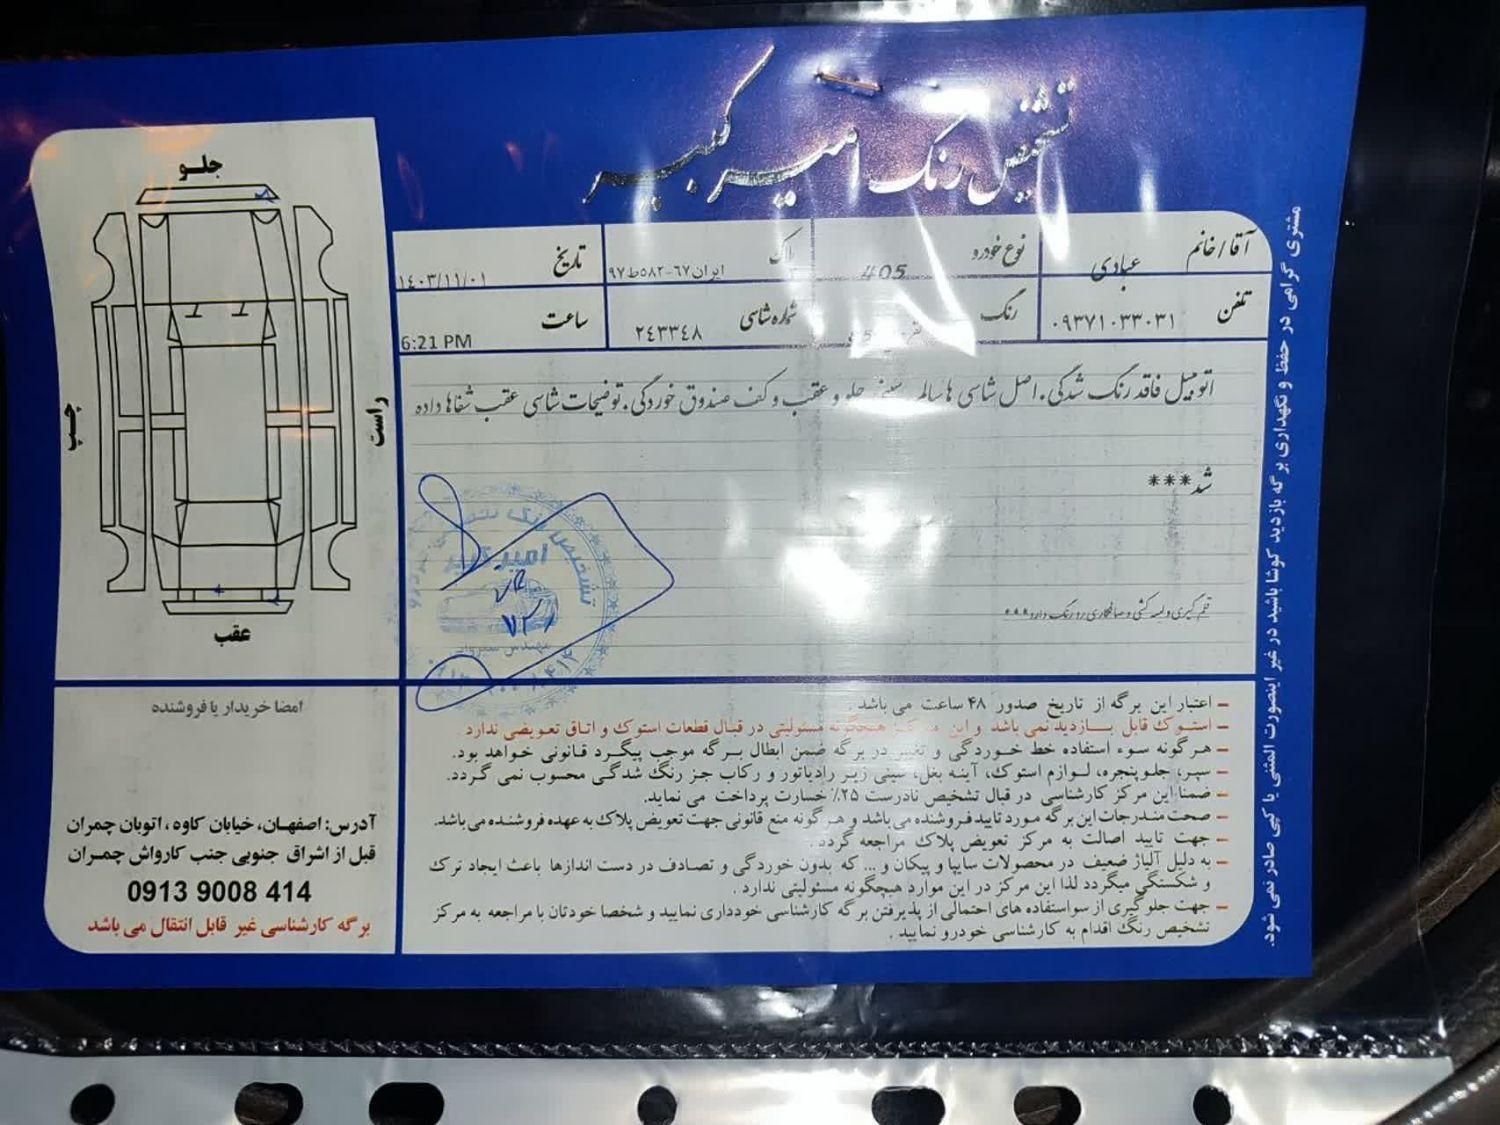 تشخیص رنگ امیرکبیر
آقا/خانم عبادی
نوع خودرو 405
پلاک ایران ۶۷-۵۸۲ط۹۷
تاریخ ۱۴۰۳/۱۱/۰۱
تلفن ۰۹۳۷۱۰۳۳۰۳۱
رنگ
شماره شاسی ۲۴۳۳۴۸
ساعت 6:21 PM
اتومبیل فاقد رنگ شدگی. اصل شاسی ها سالم سینی جلو و عقب و کف صندوق خوردگی. توضیحات شاسی عقب شفاها داده
شد***
قلم گیری و لیسه کشی و صافکاری رو رنگ دارد***
جلو
چپ
راست
عقب
تشخیص رنگ
امیرکبیر
– اعتبار این برگه از تاریخ صدور ۴۸ ساعت می باشد .
– استوک قابل بازدید نمی باشد و این مرکز هیچگونه مسئولیتی در قبال قطعات استوک و اتاق تعویضی ندارد .
– هرگونه سوء استفاده خط خوردگی و تغییر در برگه ضمن ابطال برگه موجب پیگرد قانونی خواهد بود.
– سپر، جلوپنجره، لوازم استوک، آینه بغل، سینی زیر رادیاتور و رکاب جز رنگ شدگی محسوب نمی گردد.
– ضمنا این مرکز کارشناسی در قبال تشخیص نادرست ۲۵٪ خسارت پرداخت می نماید.
– صحت مندرجات این برگه مورد تایید فروشنده می باشد و هرگونه منع قانونی جهت تعویض پلاک به عهده فروشنده می باشد.
– جهت تایید اصالت به مرکز تعویض پلاک مراجعه گردد .
– به دلیل آلیاژ ضعیف در محصولات سایپا و پیکان و ... که بدون خوردگی و تصادف در دست اندازها باعث ایجاد ترک
و شکستگی میگردد لذا این مرکز در این موارد هیچگونه مسئولیتی ندارد .
– جهت جلوگیری از سواستفاده های احتمالی از پذیرفتن برگه کارشناسی خودداری نمایید و شخصا خودتان با مراجعه به مرکز
تشخیص رنگ اقدام به کارشناسی خودرو نمایید .
امضا خریدار یا فروشنده
آدرس: اصفهان، خیابان کاوه ، اتوبان چمران
قبل از اشراق جنوبی جنب کارواش چمران
0913 9008 414
برگه کارشناسی غیر قابل انتقال می باشد
مشتری گرامی در حفظ و نگهداری برگه بازدید کوشا باشید در غیر اینصورت المثنی یا کپی صادر نمی شود.